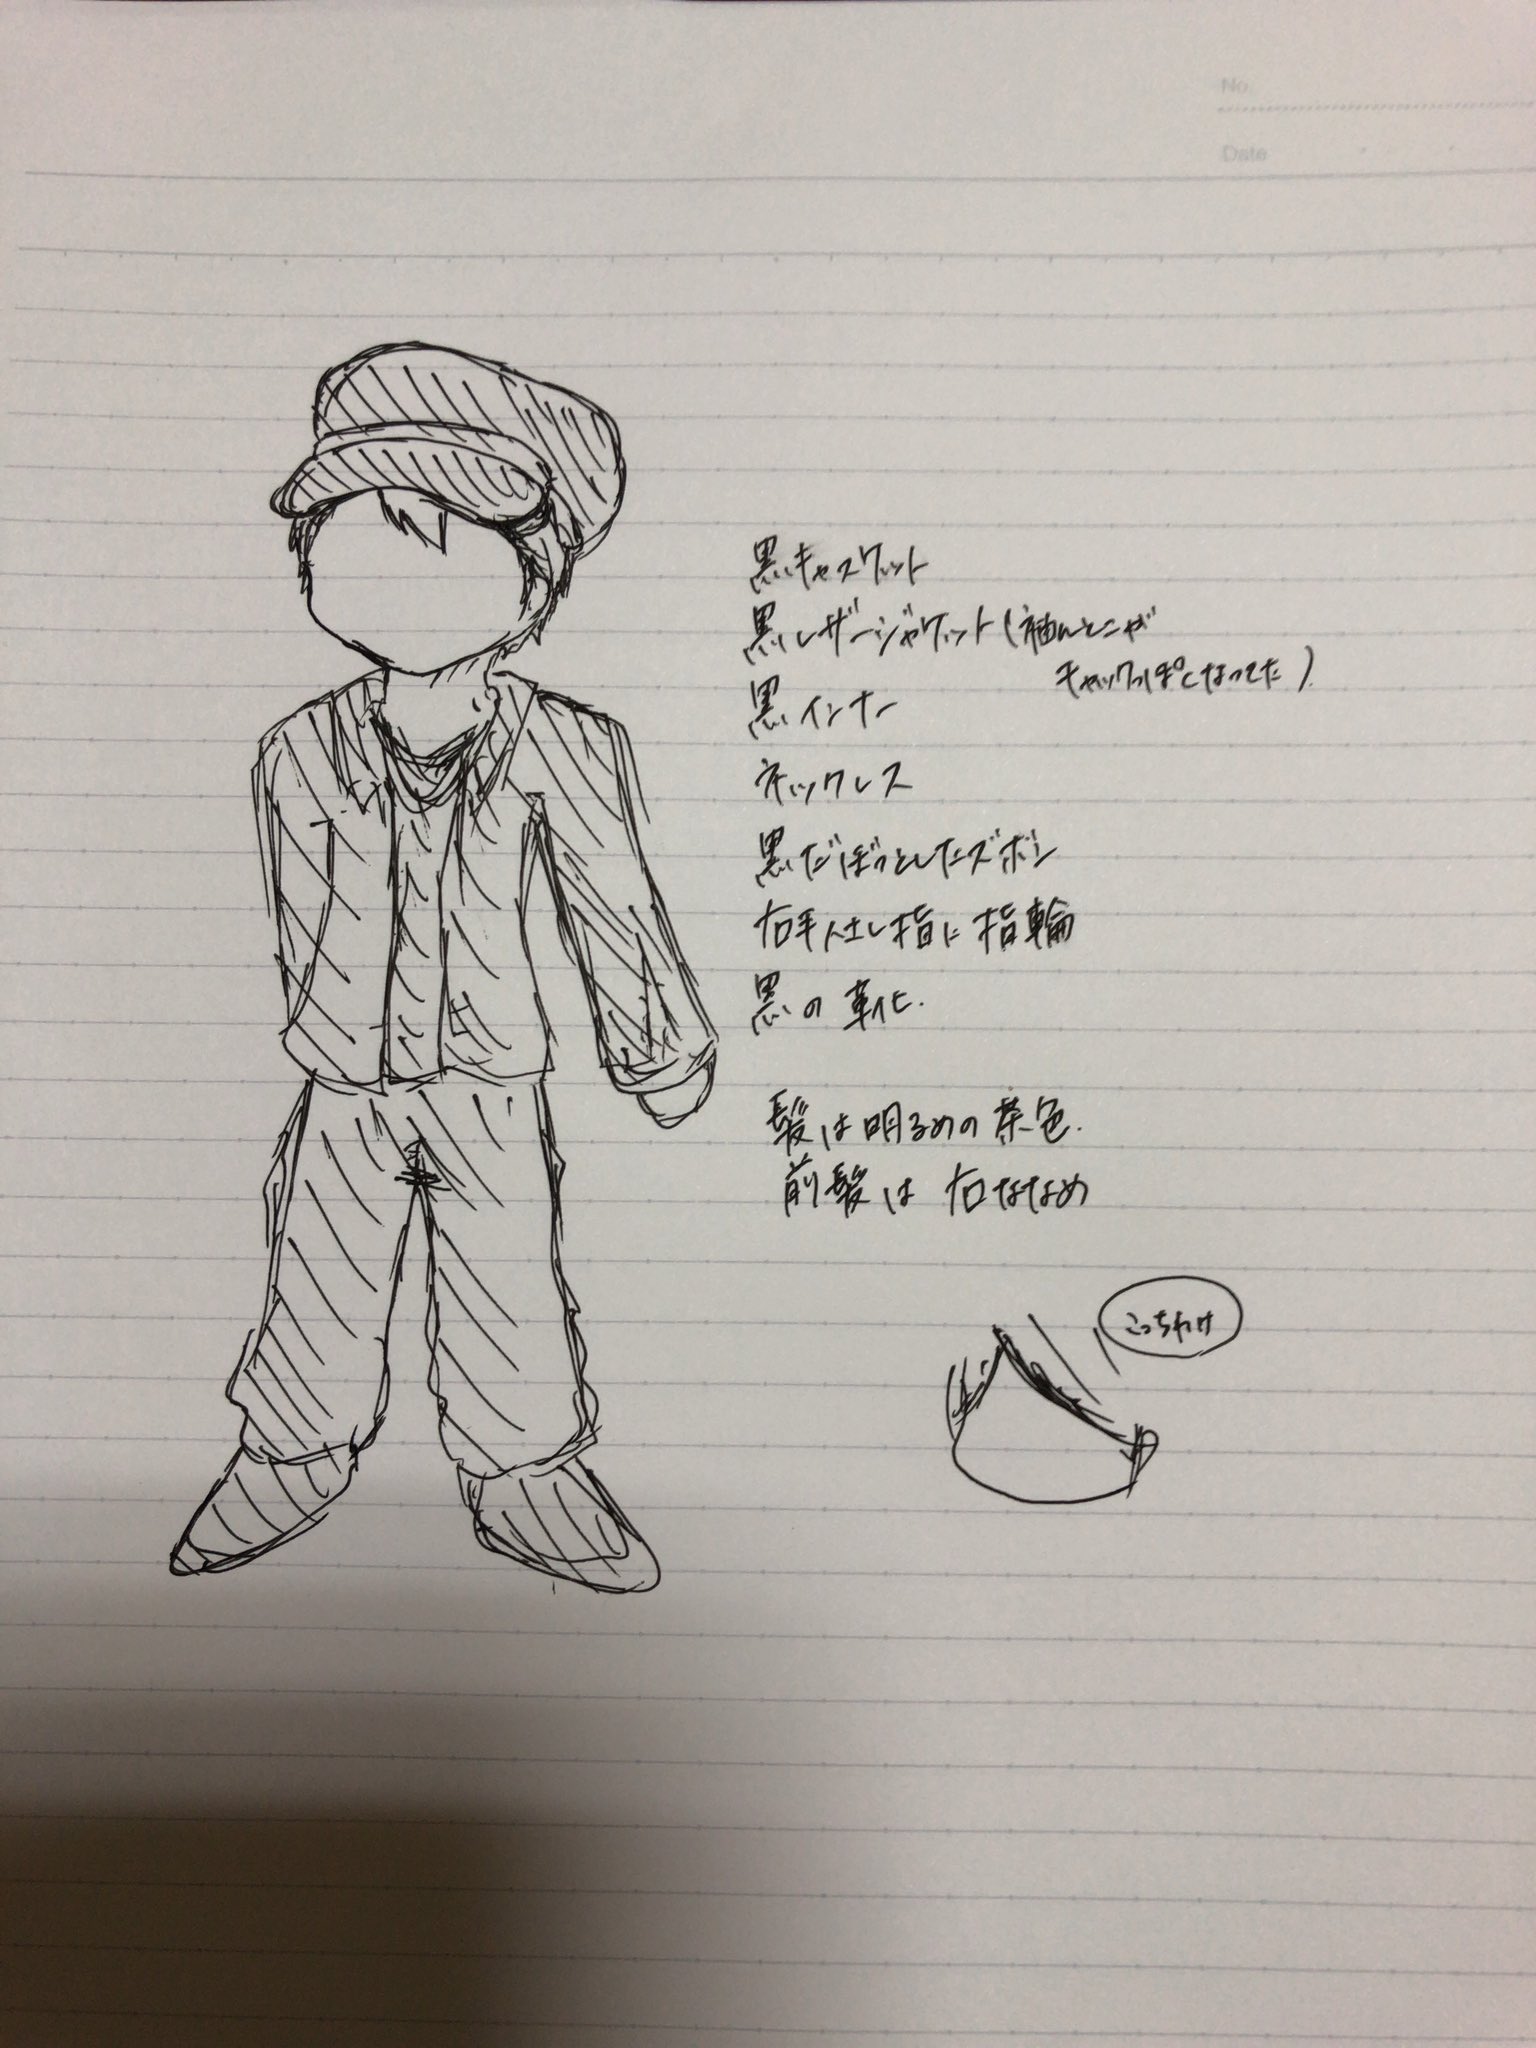 No.
Date
黒キャスケット
黒レザージャケット(袖んとこが
ギャザーっぽくなってた)
黒インナー
ネックレス
黒だぼっとしたズボン
右手人差し指に指輪
黒の革靴.
髪は明るめの茶色.
前髪は右ななめ
こっちわけ